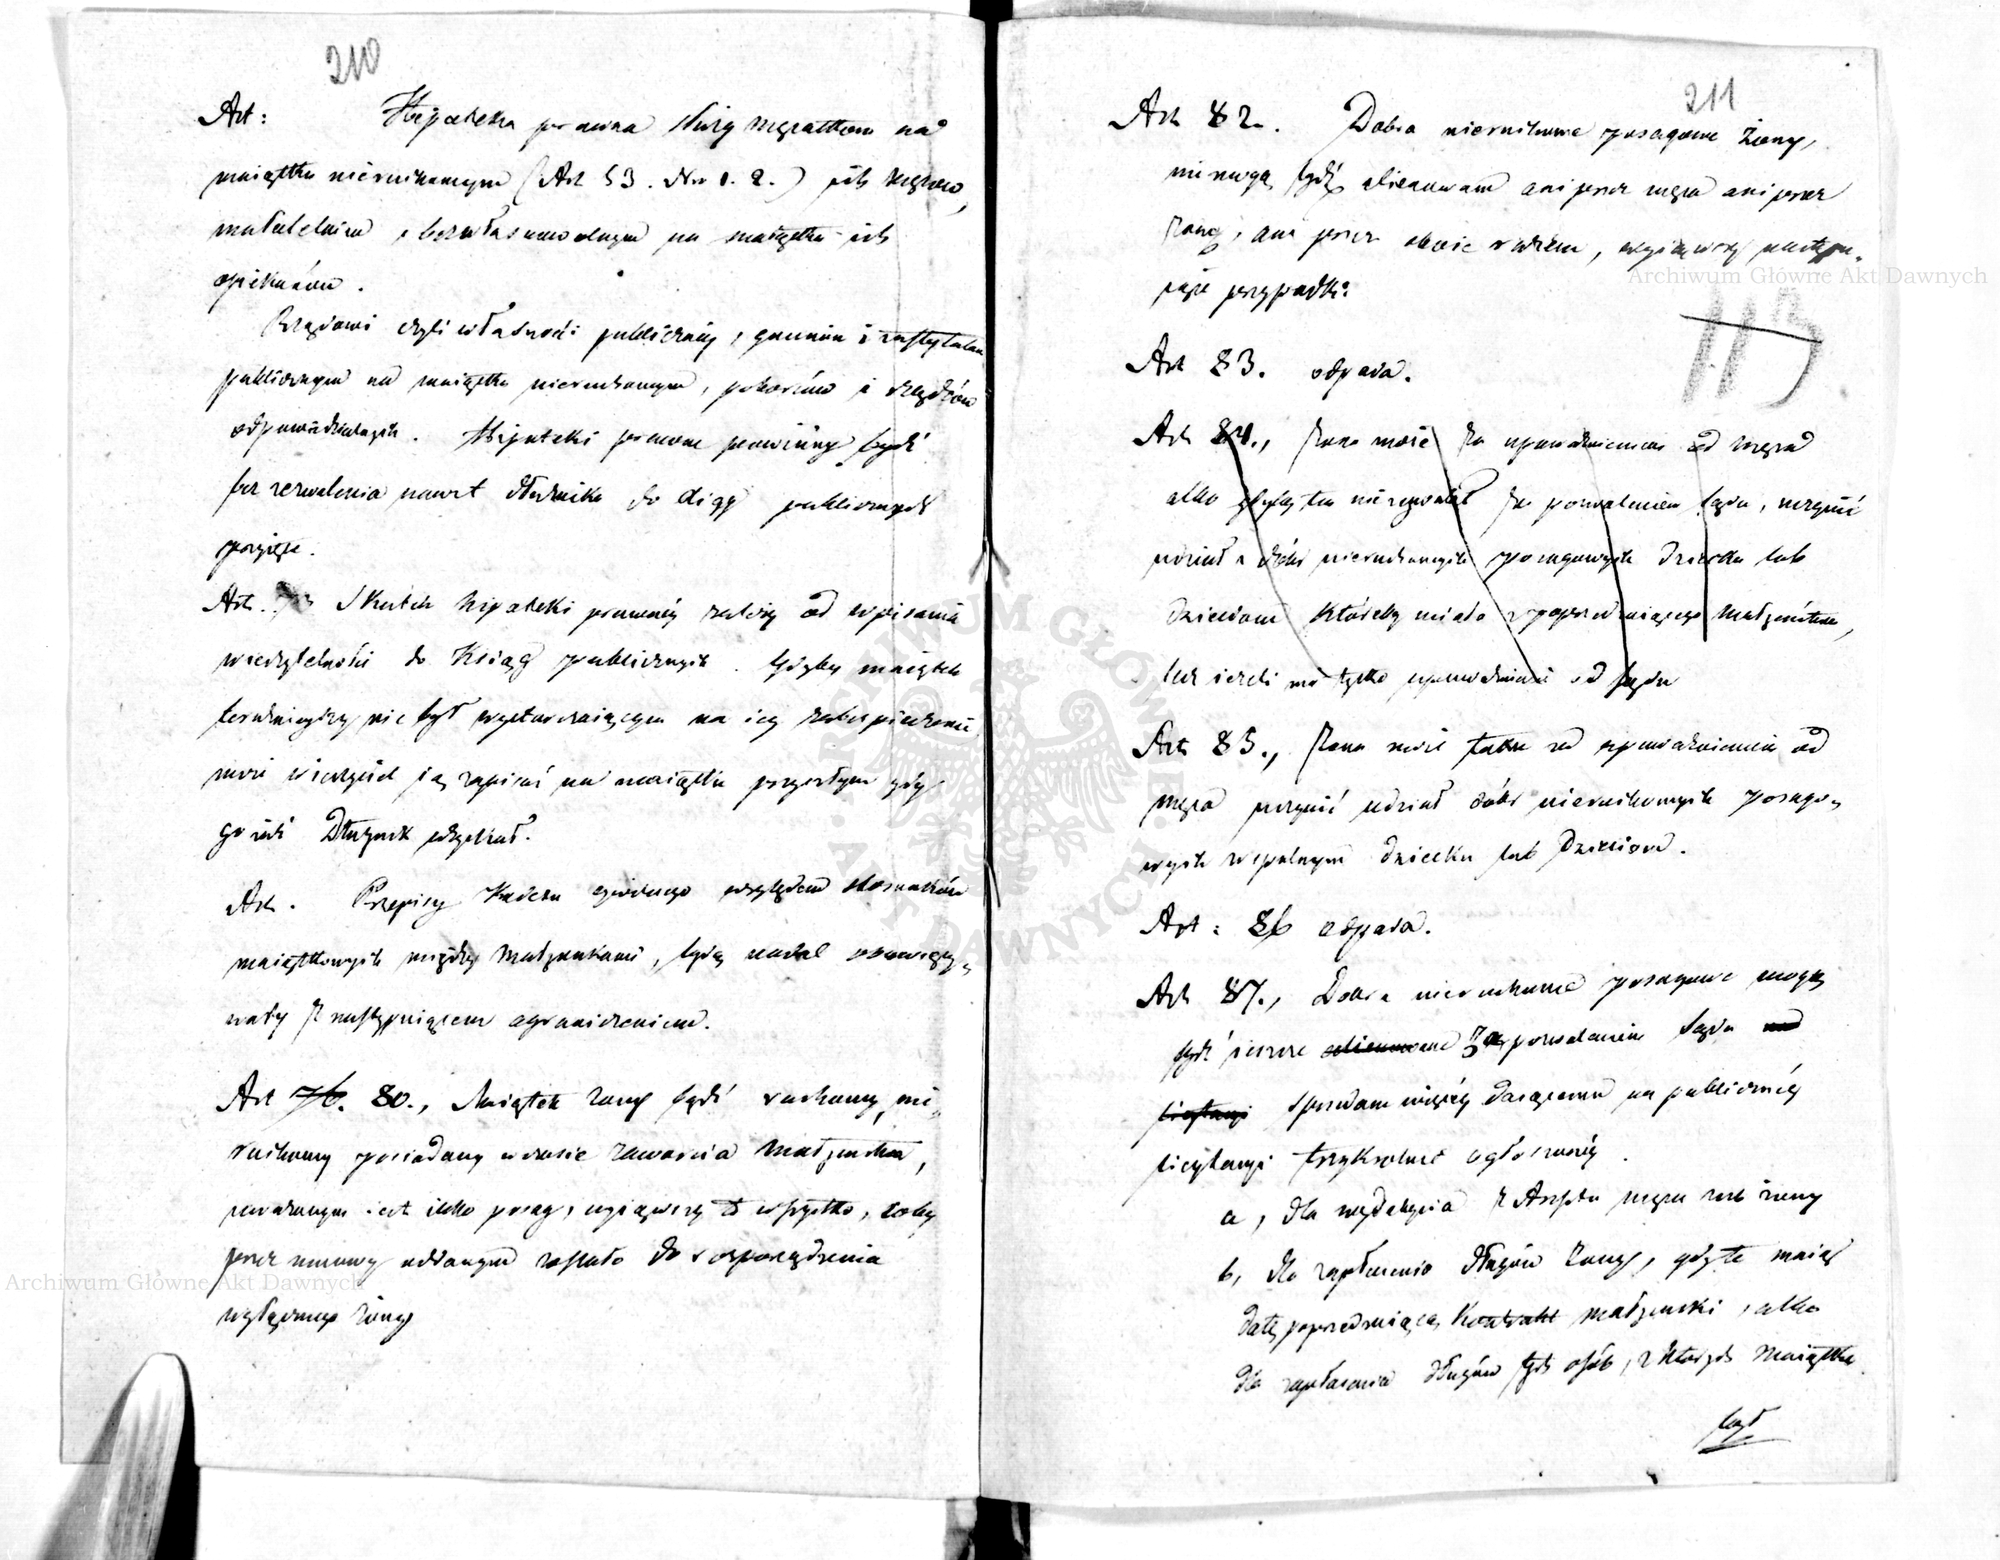 210
Art: Hipoteka prawna służy mężatkom na
maiątku nieruchomym (Art 53. Nro 1. 2.) ich mężów,
małoletnim i bezwłasnowolnym na maiątku ich
opiekunów.
Rządowi czyli własności publiczney, gminom i instytutom
publicznym na maiątku nieruchomym, poborców i rządców
odpowiedzialnych. Hipoteki prawne powinny bydź
bez zezwolenia nawet dłużnika do ksiąg publicznych
przyięte.
Art. Skutek hipoteki prawney zależy od wpisania
wierzytelności do Ksiąg publicznych. Gdyby maiątek
terażnieyszy nie był wystarczaiącym na iey zabespieczenie
może wierzyciel ią zapisać na maiątku przyszłym gdy
go iaki Dłużnik uzyskał.
Art. Przepisy Kodexu cywilnego względem stosunków
maiątkowych między małżonkami, będą nadal obowiązy-
wały z następuiącem ograniczeniem.
Art 76. 80., Maiątek żony bądź ruchomy, nie-
ruchomy posiadany w czasie zawarcia małżeństwa,
uważanym iest iako posag, wyiąwszy to wszystko, coby
przez umowy oddanym zostało do rozporządzenia
wyłącznego żony
211
Art 82. Dobra nieruchome posagowe żony,
nie mogą bydź alienowane ani przez męża ani przez
żonę, ani przez oboie razem, wyiąwszy następu-
iące przypadki:
113
Art 83. odpada.
Art 84., żona może za upoważnieniem od męża
albo gdyby ten nie zezwolił za pozwoleniem sądu, uczynić
udział z dóbr nieruchomych posagowych dziecku lub
dzieciom któreby miała z poprzedniaiącego małżeństwa,
lecz ieżeli ma tylko upoważnienie od sądu
Art 85., żona może także za upoważnieniem od
męża uczynić udział dóbr nieruchomych posago-
wych wspólnym dziecku lub Dzieciom.
Art: 86 odpada.
Art 87., Dobra nieruchome posagowe mogą
bydź ieszcze alienowane za pozwoleniem sądu na
licytacyi sprzedane więcey daiącemu na publiczney
licytacyi trzykrotnie ogłoszoney.
a, dla wydobycia z Aresztu męża lub żony
b, dla zapłacenia długów żony, gdy te maią
datę poprzedzaiącą Kontrakt małżeński, albo
dla zapłacenia długów tych osób, z których maiątku
był
Archiwum Główne Akt Dawnych
Archiwum Główne Akt Dawnych
ARCHIWUM GŁÓWNE AKT DAWNYCH